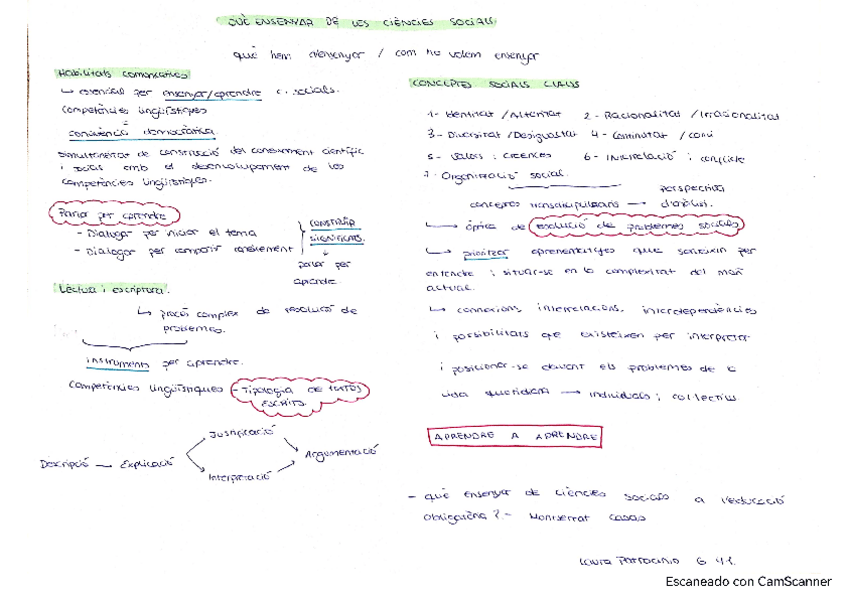 QUÈ ENSENYAR DE LES CIÈNCIES SOCIALS
què hem d'ensenyar / com ho volem ensenyar
Habilitats comunicatives
↳ essencial per ensenyar/aprendre c. socials.
Competències lingüístiques
convivència democràtica
simultaneïtat de construcció del coneixement científic
i social amb el desenvolupament de les
competències lingüístiques.
Parlar per aprendre
- Dialogar per iniciar el tema
- Dialogar per compartir coneixement
construir
significats.
↓
parlar per
aprendre.
Lectura i escriptura:
↳ procés complex de resolució de
problemes.
instruments per aprendre.
Competències lingüístiques - Tipologia de textos
escrits.
Justificació
Descripció — Explicació
Argumentació
Interpretació
CONCEPTES SOCIALS CLAUS
1- Identitat / Alteritat 2- Racionalitat / Irracionalitat
3- Diversitat / Desigualtat 4- Continuïtat / canvi
5- Valors i creences 6- Interrelació i conflicte
7- Organització social.
conceptes transdisciplinaris → perspectiva
d'anàlisi.
↳ òptica de resolució de problemes socials
↳ prioritzar aprenentatges que serveixin per
entendre i situar-se en la complexitat del món
actual.
↳ connexions, interrelacions, interdependències
i possibilitats que existeixen per interpretar
i posicionar-se davant els problemes de la
vida quotidiana → individuals i col·lectius
APRENDRE A APRENDRE
- què ensenyar de ciències socials a l'educació
obligatòria? - Montserrat Casas
Laura Patrocinio G 41.
Escaneado con CamScanner